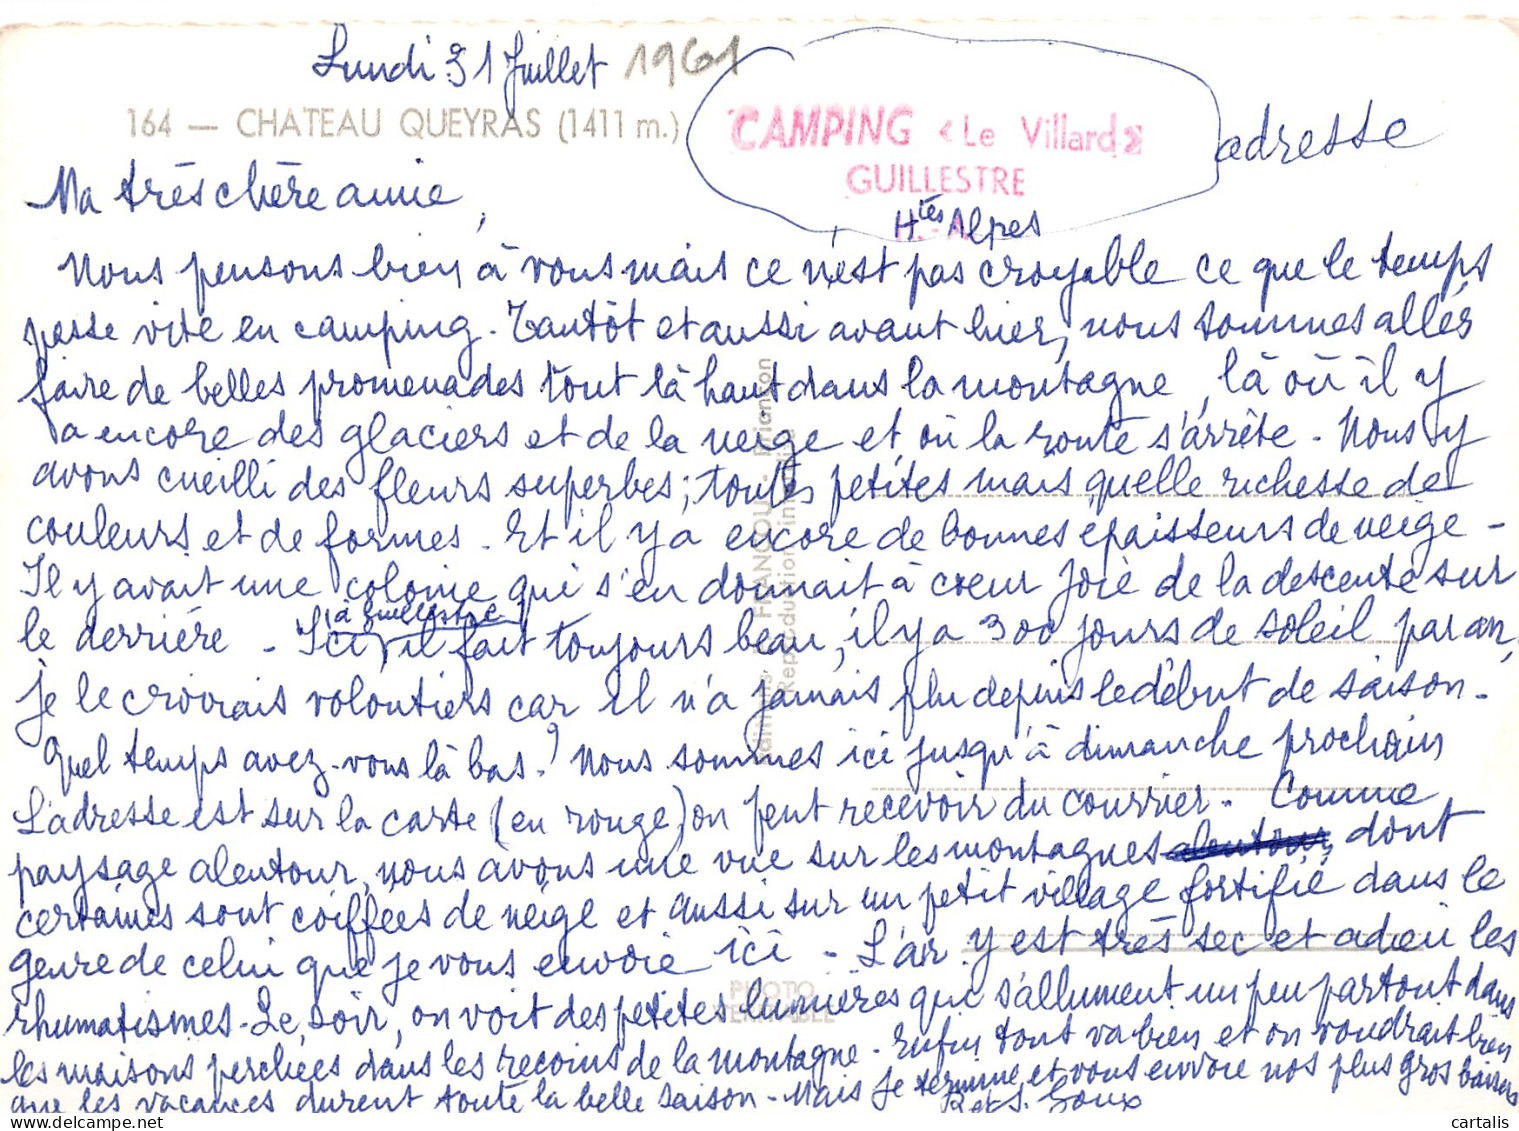 Lundi 31 Juillet 1961
164 — CHATEAU QUEYRAS (1411 m.)
CAMPING « Le Villard »
GUILLESTRE
Htes Alpes
adresse
Ma très chère amie,
Nous pensons bien à vous mais ce n'est pas croyable ce que le temps
passe vite en camping. Tantôt et aussi avant hier, nous sommes allés
faire de belles promenades tout là haut dans la montagne, là où il y
a encore des glaciers et de la neige et où la route s'arrête. Nous y
avons cueilli des fleurs superbes; toutes petites mais quelle richesse de
couleurs et de formes. Et il y a encore de bonnes épaisseurs de neige -
Il y avait une colonie qui s'en donnait à coeur joie de la descente sur
le derrière - Ici (à Guillestre) il fait toujours beau, il y a 300 jours de soleil par an,
je le croirais volontiers car il n'a jamais plu depuis le début de saison -
Quel temps avez-vous là bas? Nous sommes ici jusqu'à dimanche prochain
L'adresse est sur la carte (en rouge) on peut recevoir du courrier. Comme
paysage alentour, nous avons une vue sur les montagnes dont
certaines sont coiffées de neige et aussi sur un petit village fortifié dans le
genre de celui que je vous envoie ici - L'air y est très sec et adieu les
rhumatismes - Le soir, on voit des petites lumières qui s'allument un peu partout dans
les maisons perchées dans les recoins de la montagne. Enfin tout va bien et on voudrait bien
que les vacances durent toute la belle saison - Mais je termine, et vous envoie nos plus gros baisers
FRANCOU - Briançon
Reproduction interdite
PHOTO
VERITABLE
cartalis